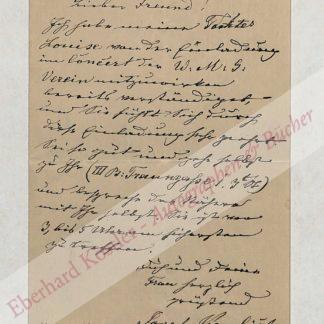 Lieber Freund!
Ich habe meine Tochter
Louise von der Einladung
im Concert der W. M. G.
Verein mitzuwirken
bereits verständiget,
und Sie fühlt sich durch
diese Einladung sehr geehrt
Sei so gut und selbst
zu Ihr (III Bz
und bespreche das Nähere
mit Ihr selbst. Sie ist von
3 bis 5 Uhr am sichersten
zu treffen.
Dich und Deine
Frau herzlich
grüßend
Eberhard Köstler Autographen & Bücher